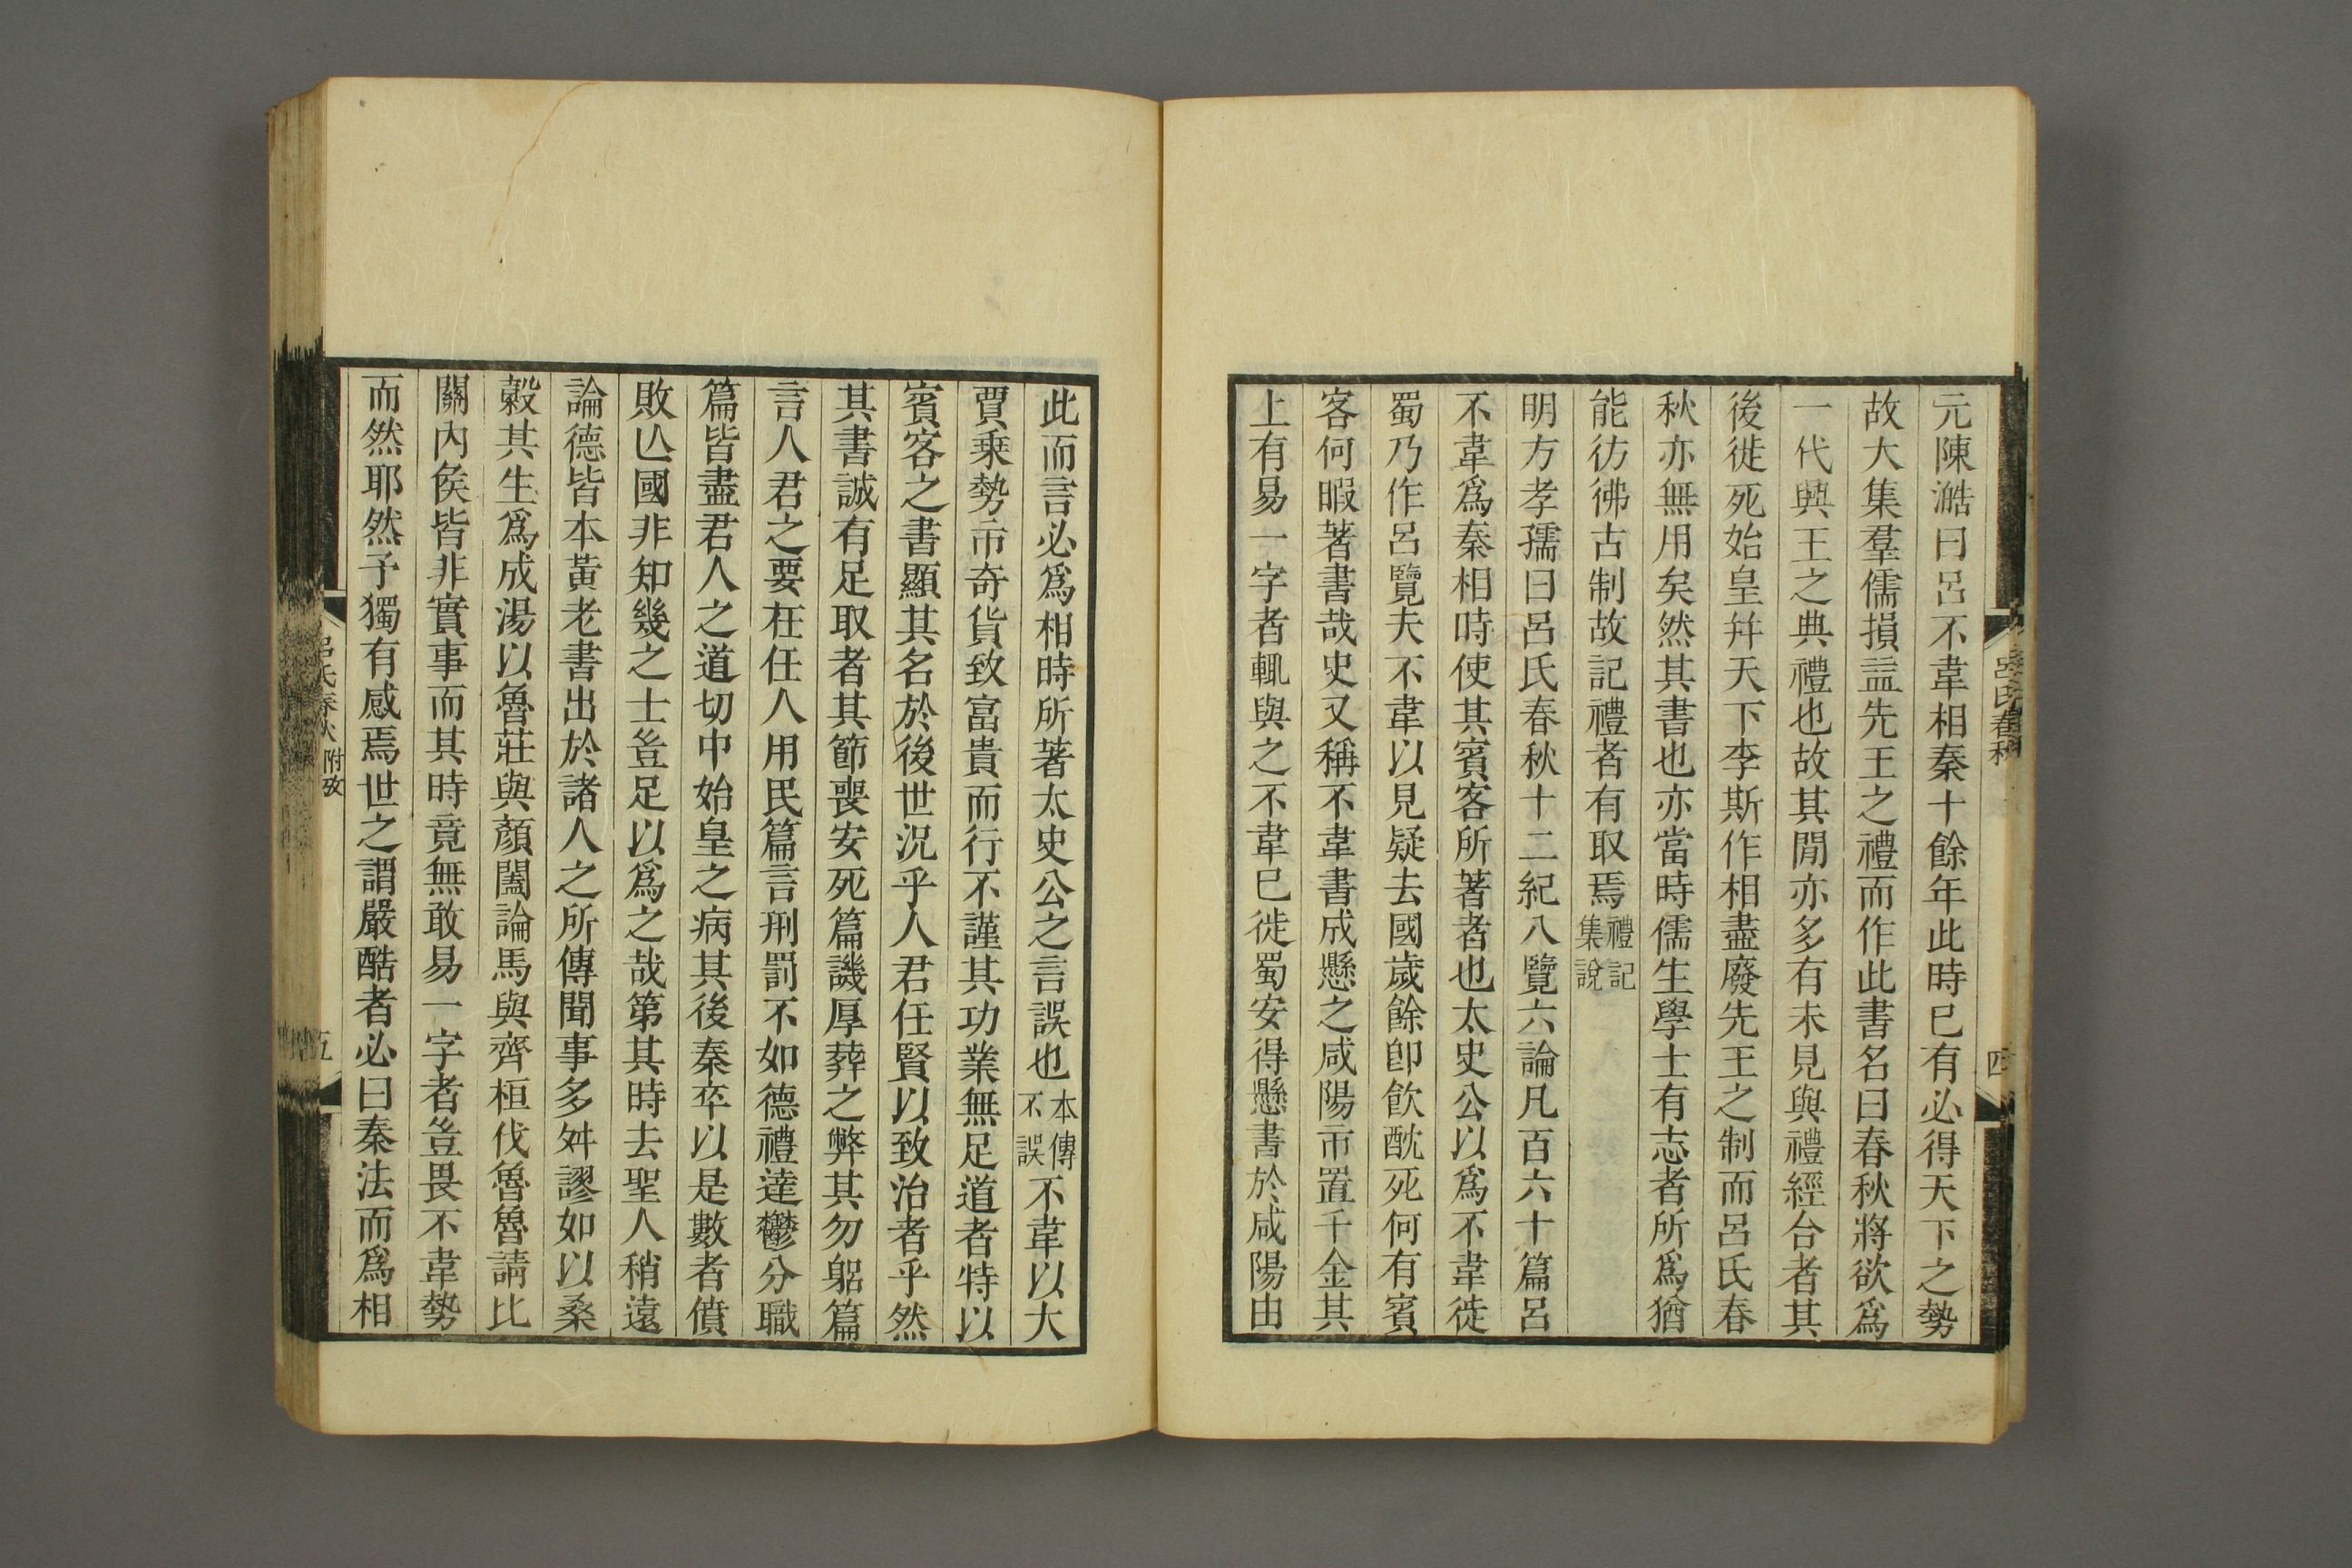 元陳澔曰呂不韋相秦十餘年此時巳有必得天下之勢
故大集羣儒損益先王之禮而作此書名曰春秋將欲爲
一代興王之典禮也故其閒亦多有未見與禮經合者其
後徙死始皇并天下李斯作相盡廢先王之制而呂氏春
秋亦無用矣然其書也亦當時儒生學士有志者所爲猶
能彷彿古制故記禮者有取焉禮記集說
明方孝孺曰呂氏春秋十二紀八覽六論凡百六十篇呂
不韋爲秦相時使其賓客所著者也太史公以爲不韋徙
蜀乃作呂覽夫不韋以見疑去國歲餘卽飮酖死何有賓
客何暇著書哉史又稱不韋書成懸之咸陽市置千金其
上有易一字者輒與之不韋巳徙蜀安得懸書於咸陽由
呂氏春秋
四
此而言必爲相時所著太史公之言誤也本傳不誤不韋以大
賈乗勢市奇貨致富貴而行不謹其功業無足道者特以
賓客之書顯其名於後世況乎人君任賢以致治者乎然
其書誠有足取者其節喪安死篇譏厚葬之弊其勿躬篇
言人君之要在任人用民篇言刑罰不如德禮達鬱分職
篇皆盡君人之道切中始皇之病其後秦卒以是數者僨
敗亾國非知幾之士豈足以爲之哉第其時去聖人稍遠
論德皆本黃老書出於諸人之所傳聞事多舛謬如以桑
穀其生爲成湯以魯莊與顏闔論馬與齊桓伐魯魯請比
關內矦皆非實事而其時竟無敢易一字者豈畏不韋勢
而然耶然予獨有感焉世之謂嚴酷者必曰秦法而爲相
呂氏春秋 附攷
五